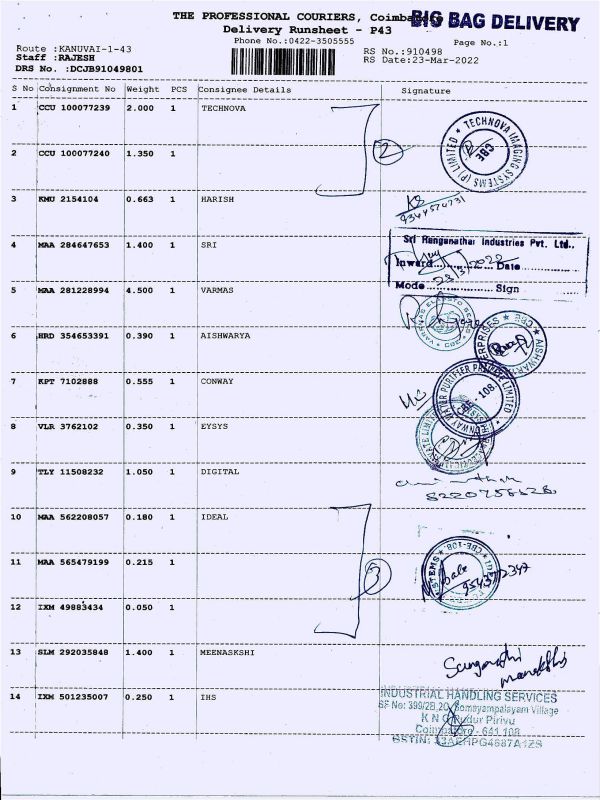 THE PROFESSIONAL COURIERS, Coimbatore
BIG BAG DELIVERY
Delivery Runsheet - P43
Phone No.:0422-3505555
Page No.:1
Route :KANUVAI-1-43
RS No.:910498
Staff :RAJESH
RS Date:23-Mar-2022
DRS No. :DCJB91049801
S No Consignment No Weight PCS Consignee Details Signature
1 CCU 100077239 2.000 1 TECHNOVA
2
TECHNOVA IMAGING SYSTEMS (P) LIMITED
CBE
2 CCU 100077240 1.350 1
3 KMU 2154104 0.663 1 HARISH
4 MAA 284647653 1.400 1 SRI
Sri Ranganathar Industries Pvt. Ltd.,
Inward Date
Mode Sign
5 MAA 281228994 4.500 1 VARMAS
6 HRD 354653391 0.390 1 AISHWARYA
7 KPT 7102888 0.555 1 CONWAY
CONWAY WATER PURIFIER PRIVATE LIMITED
CBE - 108
8 VLR 3762102 0.350 1 EYSYS
9 TLY 11508232 1.050 1 DIGITAL
10 MAA 562208057 0.180 1 IDEAL
3
CBE-108
11 MAA 565479199 0.215 1
12 IXM 49883434 0.050 1
13 SLM 292035848 1.400 1 MEENASKSHI
14 IXM 501235007 0.250 1 IHS
INDUSTRIAL HANDLING SERVICES
SF No: 399/2B,20, Somayampalayam Village
K N G Pudur Pirivu
Coimbatore - 641 108